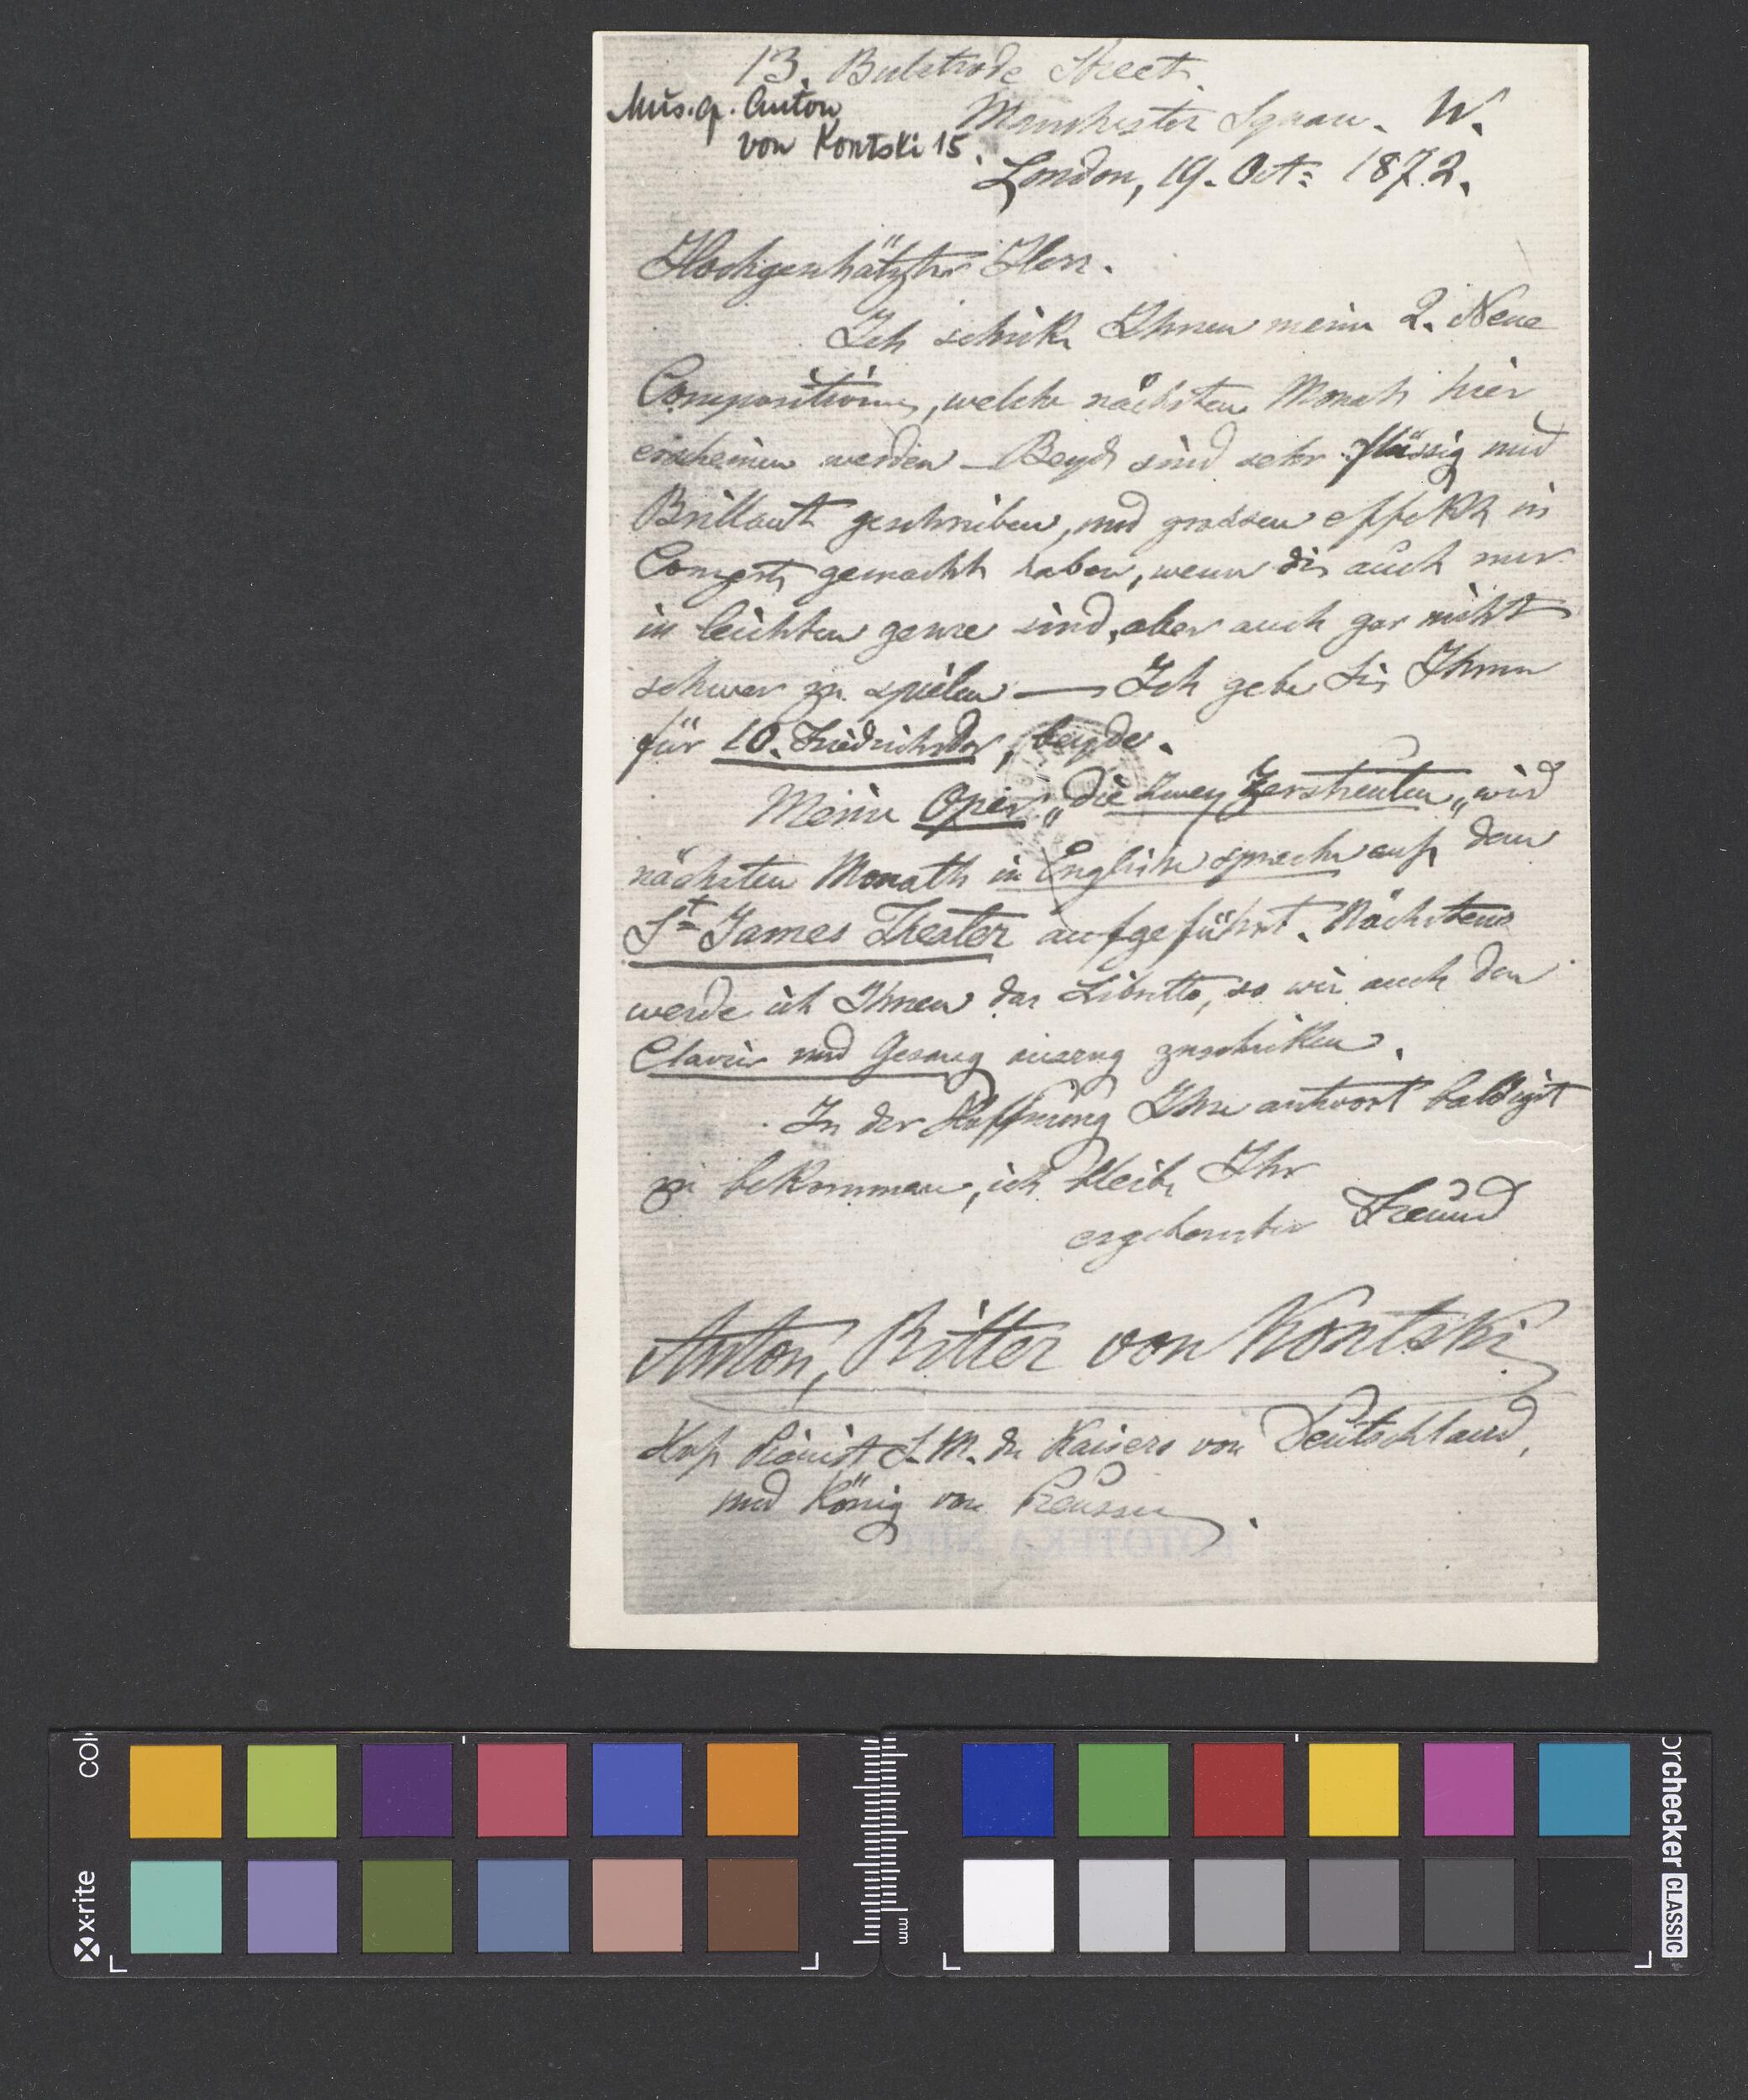 13. Bulstrode Street.
Mus. ep. Anton
von Kontski 15.
Manchester Square. W.
London, 19. Oct: 1872.
Hochgeschätzter Herr.
Ich schike Ihnen meine 2. Neue
Compositionen, welche nächsten Monath hier
erscheinen werden – Beyde sind sehr flüssig und
Brillant geschrieben, und grossen effekt in
Conzert gemacht haben, wenn die auch nur
in leichten genre sind, aber auch gar nicht
schwer zu spielen — Ich gebe Sie Ihnen
für 10. Friedrichsdor, beyde.
Meine Oper „die zwey Zerstreuten„ wird
nächsten Monath in Englische sprache auf dem
St James Theater aufgeführt. Nächstens
werde ich Ihnen das Libretto, so wie auch den
Clavier und Gesang auszug zuschiken.
In der Hoffnung Ihre antwort baldigst
zu bekommen, ich bleibe Ihr
ergebenster Freund
Anton, Ritter von Kontski
Hof Pianist S. M. des Kaisers von Deutschland,
und König von Preussen.
col
x·rite
mm
orchecker CLASSIC